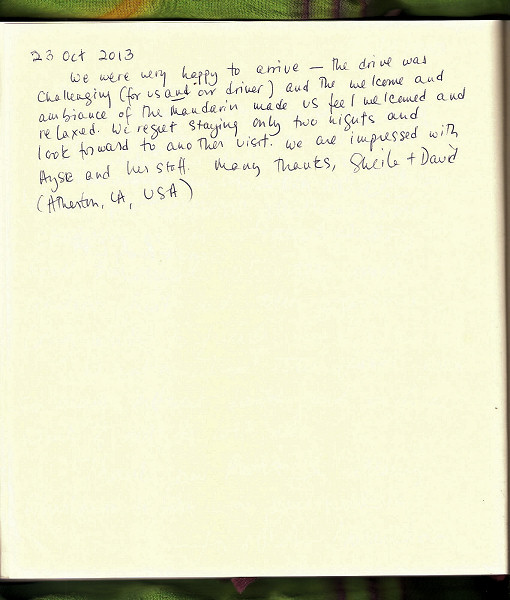 23 Oct 2013
We were very happy to arrive — the drive was
challenging (for us and our driver) and the welcome and
ambiance of the Mandarin made us feel welcomed and
relaxed. We regret staying only two nights and
look forward to another visit. We are impressed with
Ayse and her staff. Many Thanks, Sheila + David
(Atherton, CA, USA)